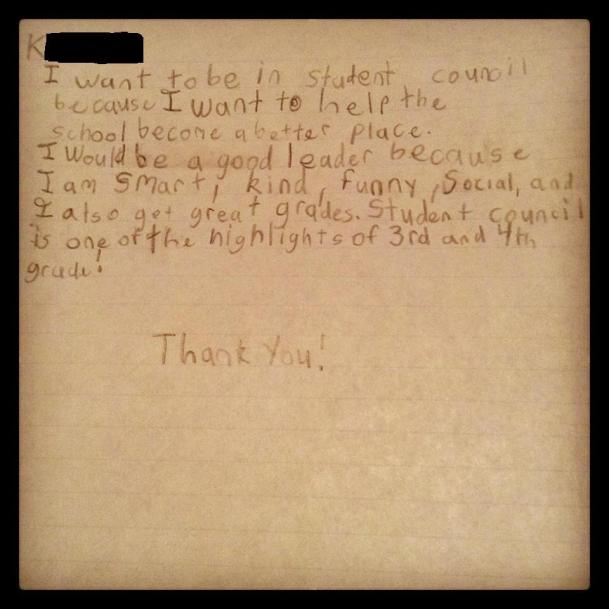 K
I want to be in student council
because I want to help the
school become a better place.
I would be a good leader because
I am smart, kind, funny, Social, and
I also get great grades. Student council
is one of the highlights of 3rd and 4th
grade!
Thank You!